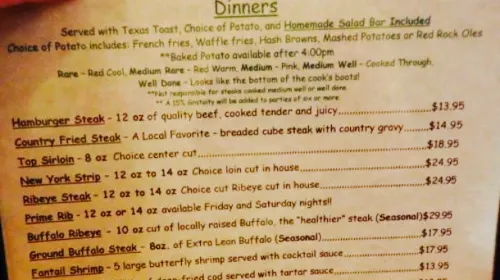 Dinners
Served with Texas Toast, Choice of Potato, and Homemade Salad Bar Included
Choice of Potato includes: French fries, Waffle fries, Hash Browns, Mashed Potatoes or Red Rock Oles
**Baked Potato available after 4:00pm
Rare - Red Cool, Medium Rare - Red Warm, Medium - Pink, Medium Well - Cooked Through,
Well Done - Looks like the bottom of the cook's boots!
**Not responsible for steaks cooked medium well or well done.
** A 15% Gratuity will be added to parties of six or more.
Hamburger Steak - 12 oz of quality beef, cooked tender and juicy $13.95
Country Fried Steak - A Local Favorite - breaded cube steak with country gravy $14.95
Top Sirloin - 8 oz Choice center cut $18.95
New York Strip - 12 oz to 14 oz Choice loin cut in house $24.95
Ribeye Steak - 12 oz to 14 oz Choice cut Ribeye cut in house $24.95
Prime Rib - 12 oz or 14 oz available Friday and Saturday nights!!
Buffalo Ribeye - 10 oz cut of locally raised Buffalo, the "healthier" steak (Seasonal) $29.95
Ground Buffalo Steak - 8oz. of Extra Lean Buffalo (Seasonal) $17.95
Fantail Shrimp - 5 large butterfly shrimp served with cocktail sauce $17.95
fried cod served with tartar sauce $13.95